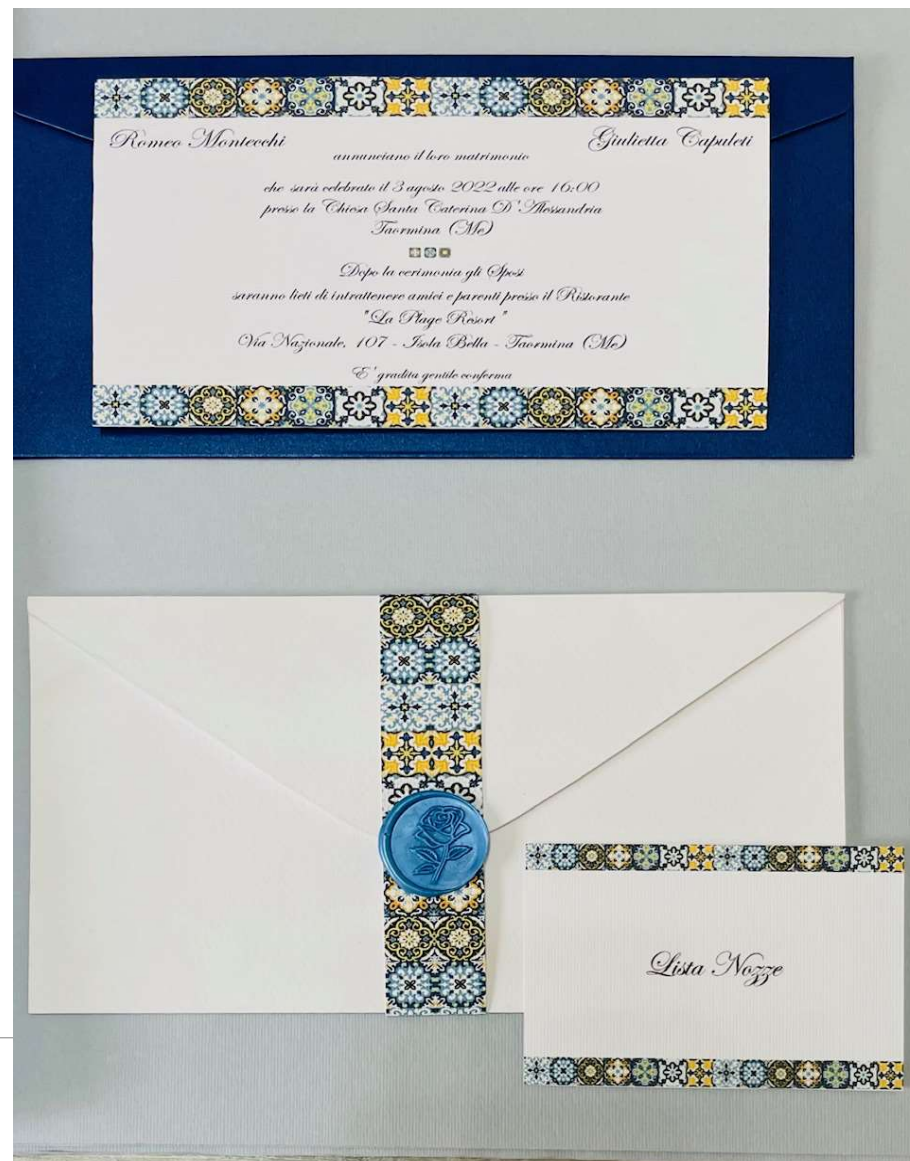 Romeo Montecchi
Giulietta Capuleti
annunciano il loro matrimonio
che sarà celebrato il 3 agosto 2022 alle ore 16:00
presso la Chiesa Santa Caterina D'Alessandria
Taormina (Me)
Dopo la cerimonia gli Sposi
saranno lieti di intrattenere amici e parenti presso il Ristorante
"La Plage Resort"
Via Nazionale, 107 - Isola Bella - Taormina (Me)
E' gradita gentile conferma
Lista Nozze